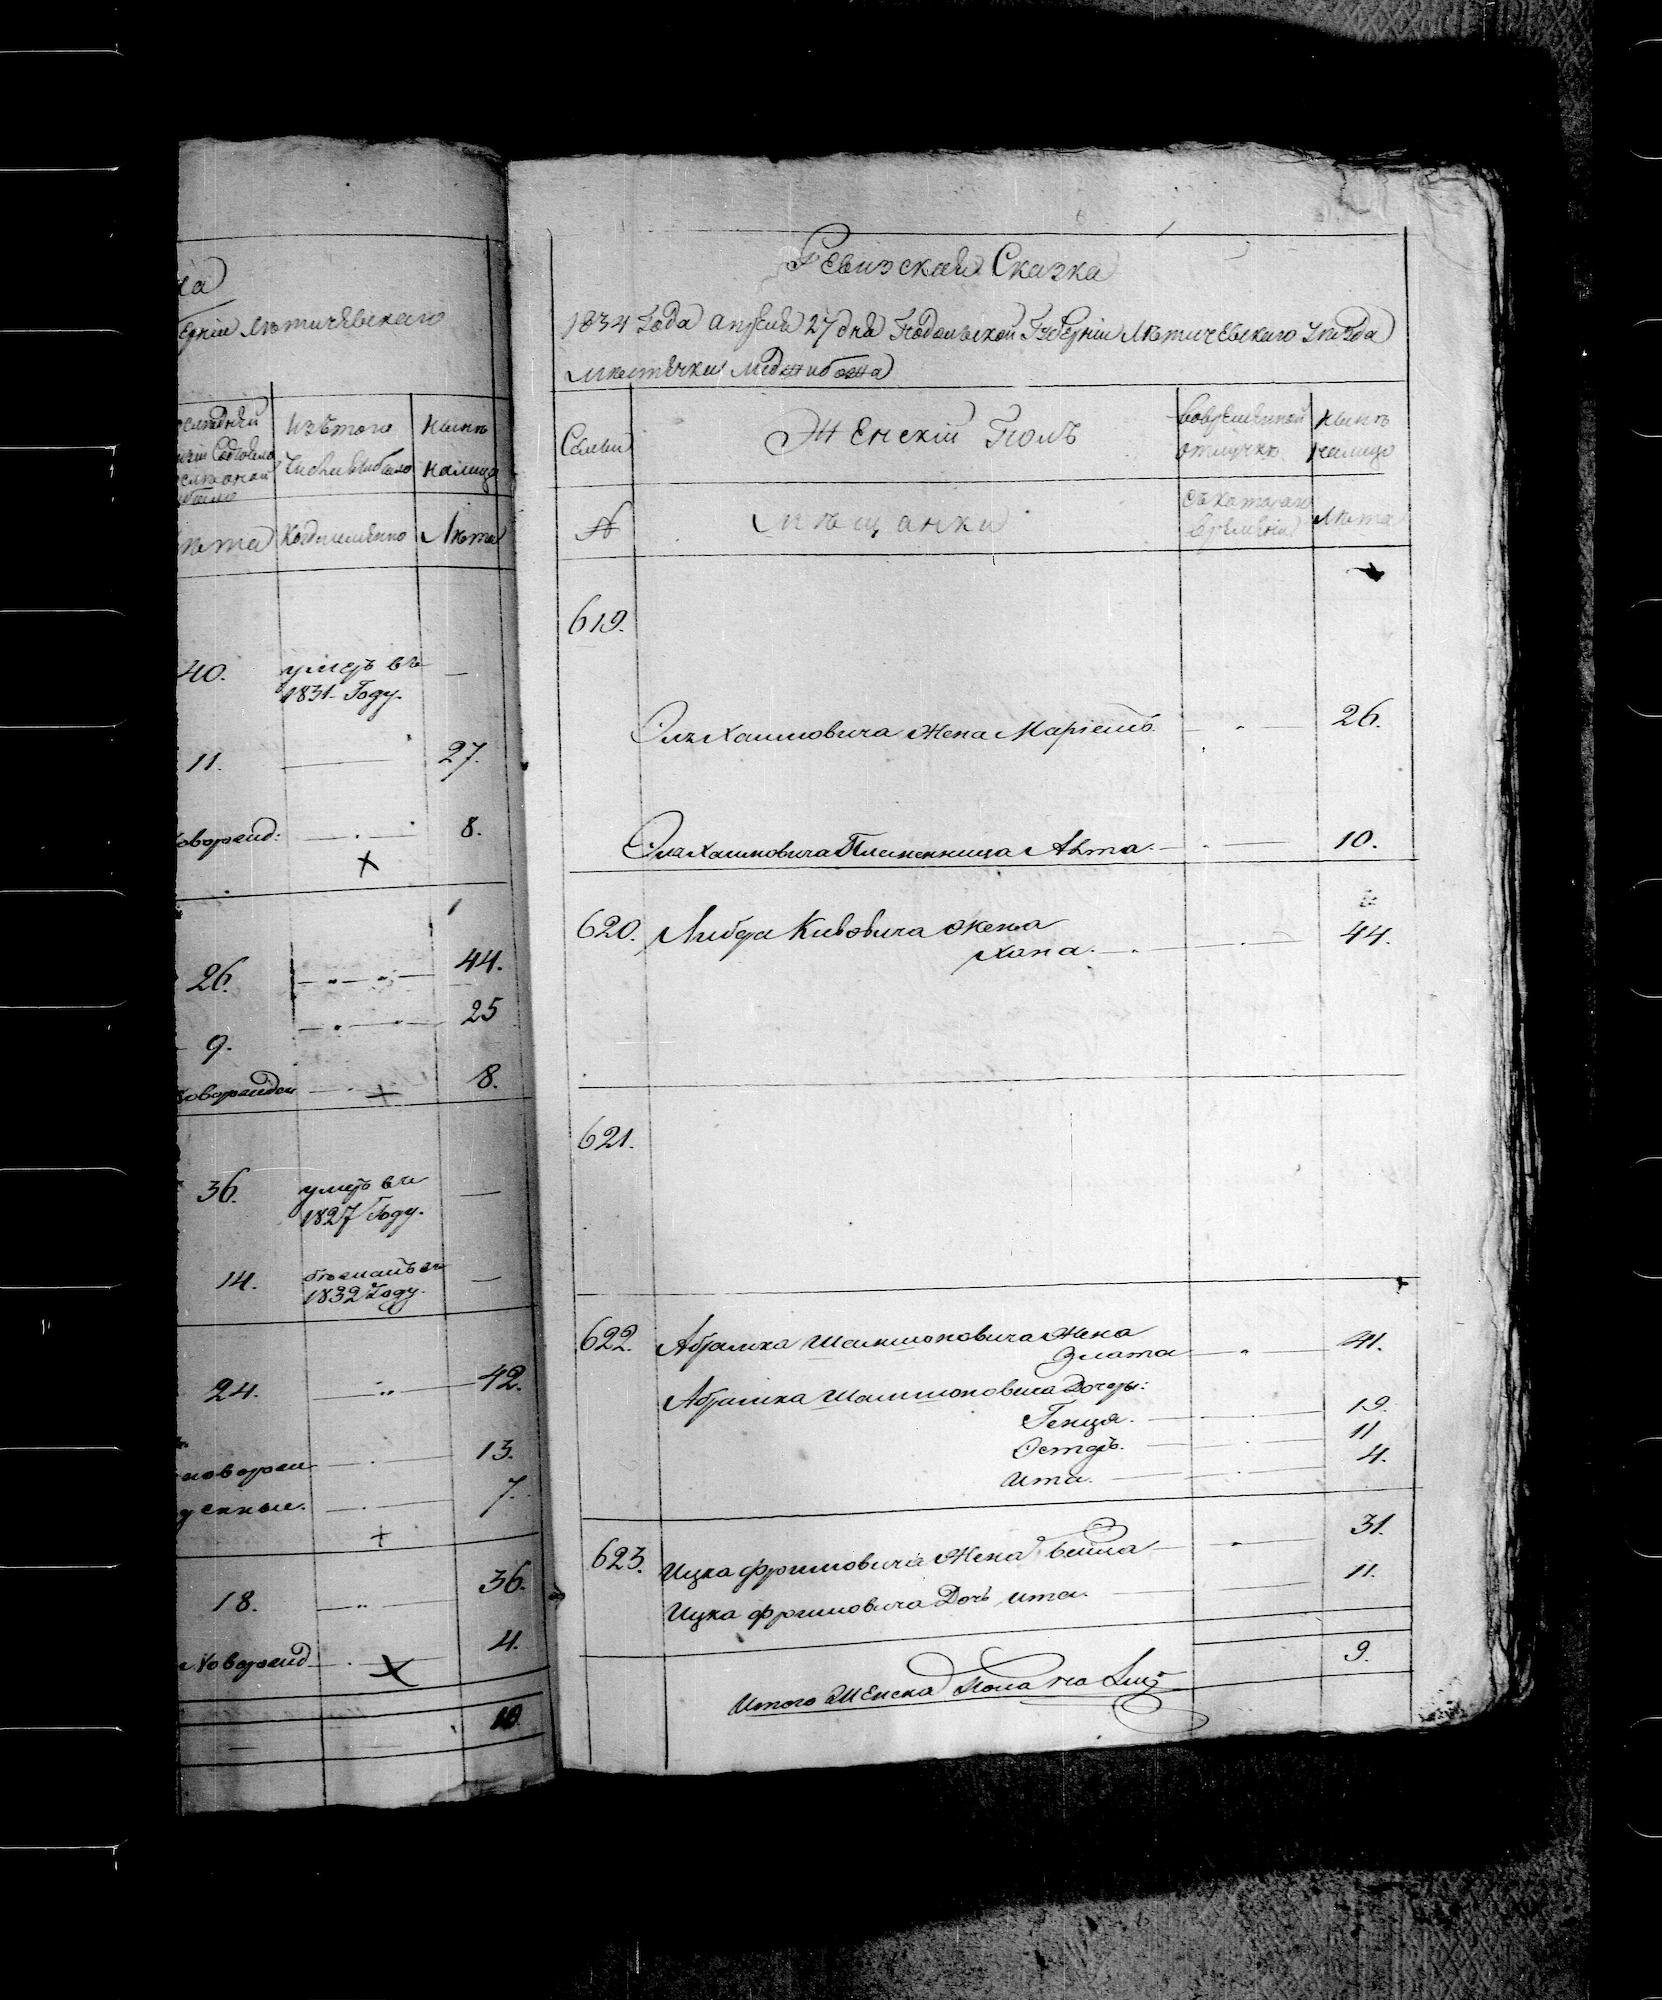 на
берніи Лѣтичевскаго
изъ того
числа выбыло
Нынѣ
налицо
лѣта
Когда именно
Лѣта
40.
умеръ въ
1831. Году.
—
11.
27.
новорожд:
8.
26.
44.
9.
25
новорожден
8.
36.
умеръ въ
1827 Году.
—
14.
1832 Году.
—
24.
42.
новорож
13.
денные.
7.
18.
36.
Новорожд
4.
10.
Ревизская Сказка
1834 Года апреля 27 дня Подольской Губерніи Лѣтичевскаго Уѣзда
Мѣстечка Меджибожа
Семьи
Женскій Полъ
Во временной
отлучкѣ
Нынѣ
налицо
№
Мѣщанки
Съ котораго
времени
Лѣта
619.
Хаимовича Жена Маріемъ 26.
Хаимовича Племенница 10.
620. Лейбы Кивовича Жена
Хана. 44.
621.
622. Абрамка Шамшоновича Жена
Злата 41.
Абрамка Шамшоновича Дочеры:
Генця. 19.
Эстеръ. 11
Ита. 4.
623. Ицка Фроимовича Жена Бейла 31.
Ицка Фроимовича Дочь Ита. 11.
Итого Женска Пола на Лицо 9.